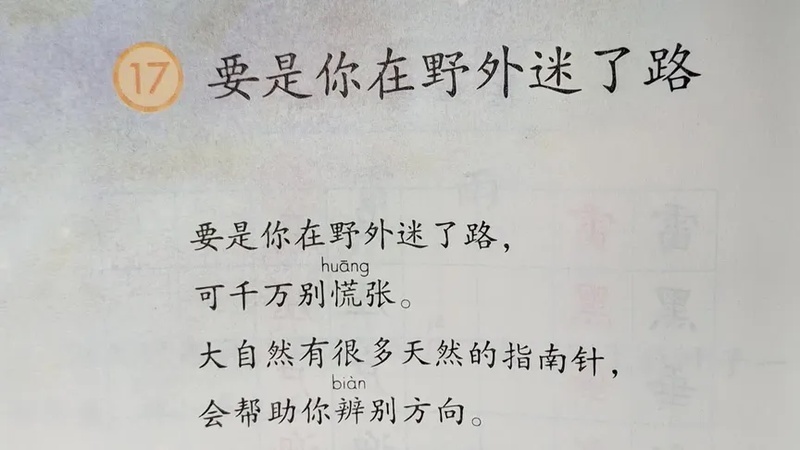 17 要是你在野外迷了路
要是你在野外迷了路，
huāng
可千万别慌张。
大自然有很多天然的指南针，
biàn
会帮助你辨别方向。
雷
黑